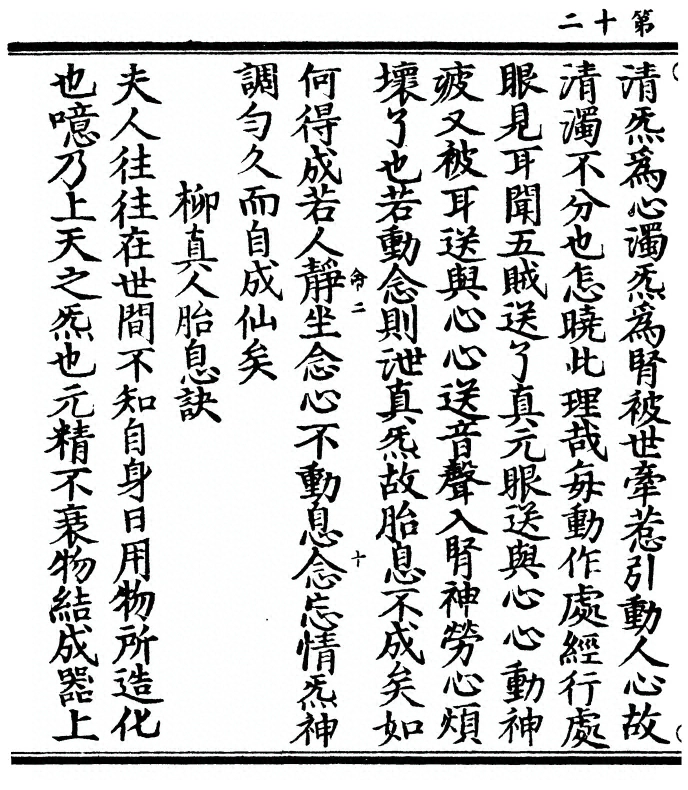 第十二
清炁為心濁炁為腎被世牽惹引動人心故
清濁不分也怎曉此理哉每動作處經行處
眼見耳聞五賊送了真元眼送與心心動神
疲又被耳送與心心送音聲入腎神勞心煩
壞了也若動念則泄真炁故胎息不成矣如
何得成若人靜坐念心不動息念忘情炁神
命二
十
調勻久而自成仙矣
柳真人胎息訣
夫人往往在世間不知自身日用物所造化
也噫乃上天之炁也元精不衰物結成器上